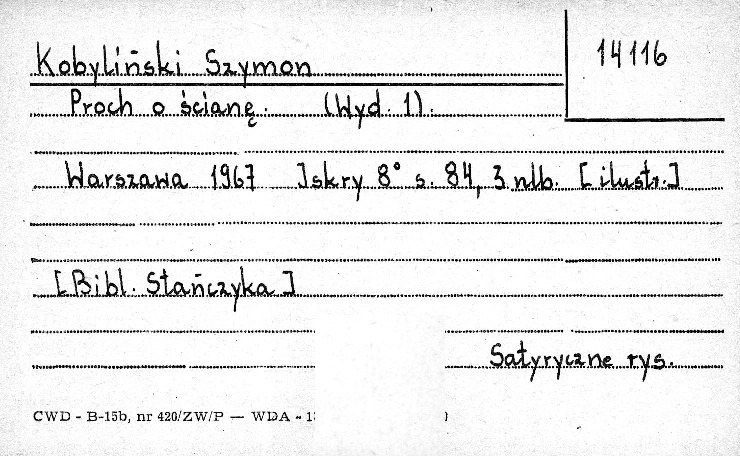 Kobyliński Szymon
14116
Proch o ścianę. (Wyd. 1).
Warszawa 1967 Iskry 8° s. 84, 3 nlb. [ilustr.]
[Bibl. Stańczyka]
Satyryczne rys.
CWD - B-15b, nr 420/ZW/P — WDA -